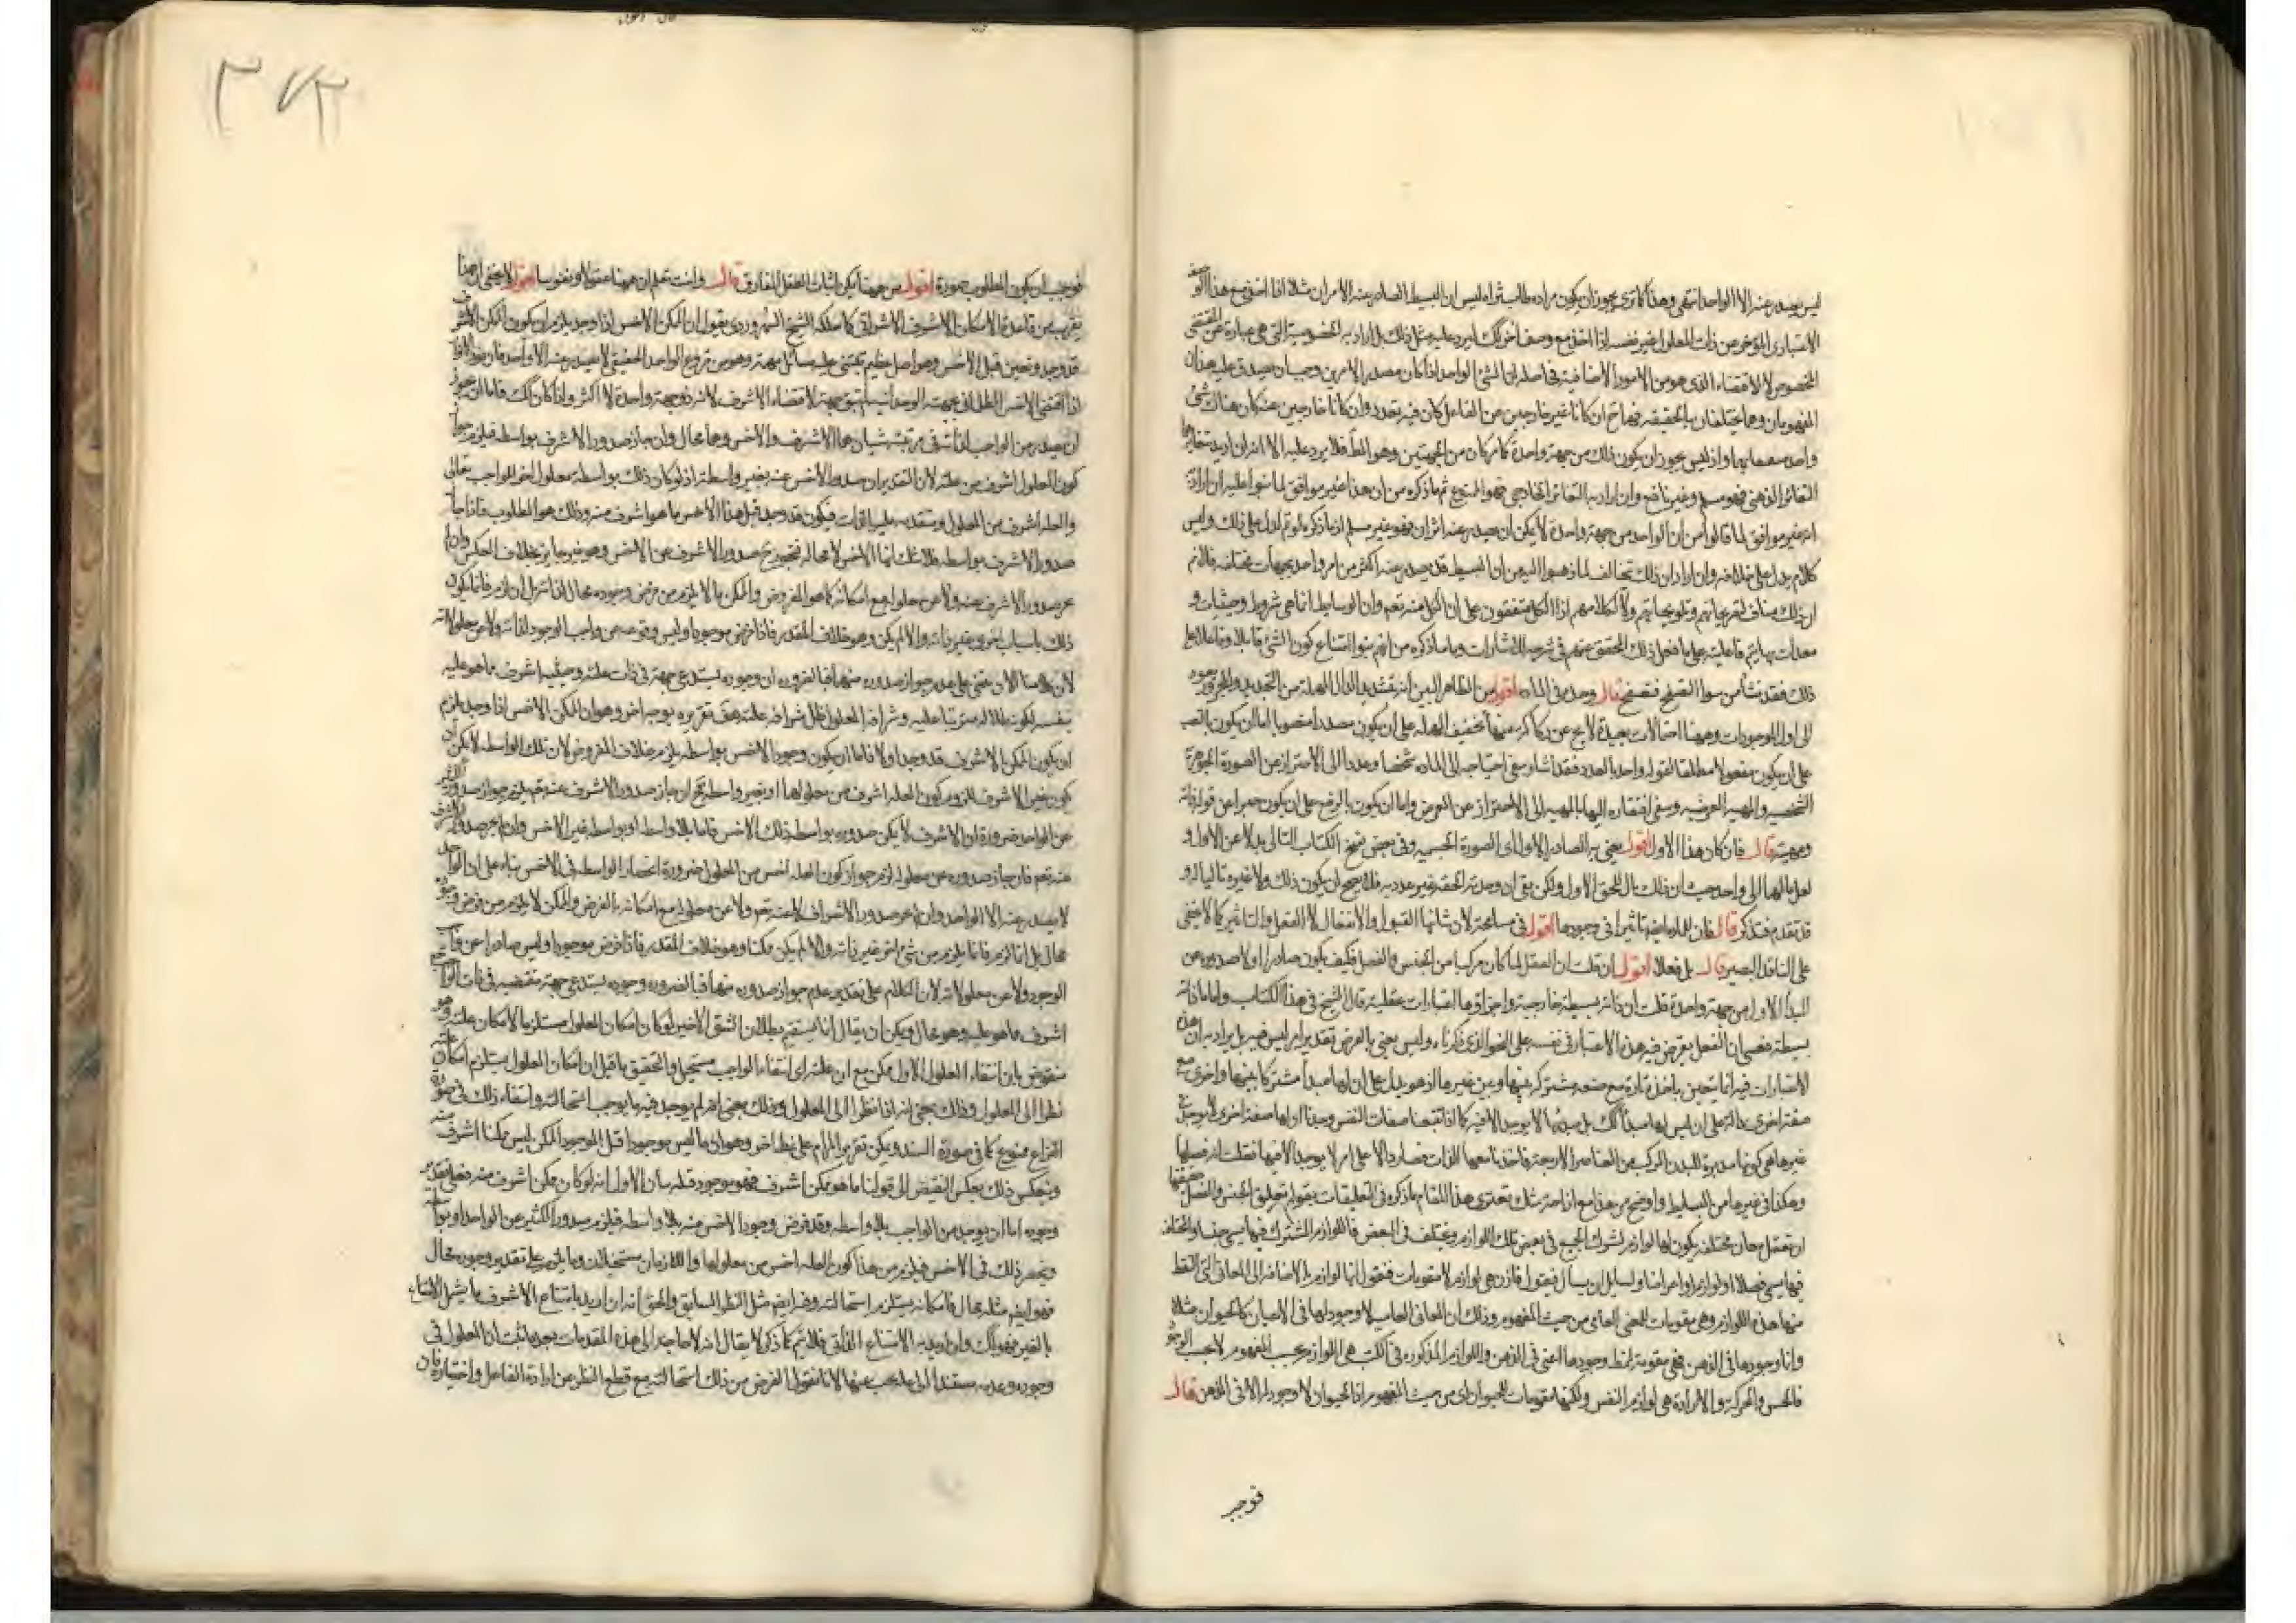 ليس يصدر عنه الا الواحد انتهى وهذا كما ترى يجوز ان يكون مراده طالب ثراه ليس ان البسيط الصادر عنه الامران مثلا اذا اخذ مع هذا الوصف
الاعتبارى المؤخر عن ذات المعلول غير نفسه اذا اخذ مع وصف اخر لك ليرد عليه مثل ذلك بل اراد به الخصوصية التى هى عبارة عن المقتضى
المخصوص لا الاقتضاء الذى هو من الامور الاضافية فى اصله ان الشئ الواحد اذا كان مصدر الامرين وجب ان يصدق عليه هذان
المفهومان وهما مختلفان بالحقيقة فهما ان كانا غير خارجين عن الفاعل كان فيه تعدد وان كانا خارجين عنه كان هناك شئ
واحد اذ ليس يجوز ان يكون ذلك من جهة واحدة كما كان من الجهتين وهو الظ فلا يرد عليه الا انه ان اريد تغايرهما
التغاير الذهنى فهو مسلم وغير نافع وان اراد به التغاير الخارجى فهو الممنوع ثم ما ذكره من ان هذا غير موافق لما بنوا عليه ان اراد
انه غير موافق لما قالوا من ان الواحد من جهة واحدة لا يمكن ان يصدر عنه اثران فهو غير مسلم اذ ما ذكره لو تم لدل على ذلك وليس
كلام يدل على خلافه وان اراد ان ذلك تخالف لما ذهبوا اليه من ان البسيط قد يصدر عنه اكثر من امر واحد بجهات مختلفة فلانم
ان ذلك مناف لتصريحاتهم وتلويحاتهم ولا لكلامهم اذ الكل متفقون على ان الكل منه تعم وان الوسايط انما هى شروط وحيثيات و
معدات بها يتم فاعليته على ما فعل ذلك المحقق عنهم فى شرحه للاشارات وما ذكره من انهم بنوا امتناع كون الشئ قابلا وفاعلا على
ذلك فقد نشأ من سوء التصفح فتصفح قال وحده فى الماده اقول من الظاهر البين انه بتشديد الدال المهملة من التحديد والمجرور يعود
الى اول الموجودات وههنا احتمالات بعيدة منها تخفيف المهملة على ان يكون مصدرا منصوبا اما ان يكون بالنصب
على ان يكون مفعولا مطلقا لقوله واحد بالعدد فقد اشار بنفى احتياجه الى الماده شخصا وعددا الى الاحتراز عن الصورة الجوهرية
الشخصيه والمهيه العرضيه وبنفى افتقاره اليها بالمهيه الى الاحتراز عن العرض واما ان يكون بالرفع على ان يكون خبرا عن قوله ذاته
ومهيته قال فان كان هذا الاول اقول يعنى به الصادر الاول اى الصورة الجسميه وفى بعض نسخ الكتاب التالى بدلا عن الاول و
لعل مالهما الى واحد حيث ان ذلك تال للحق الاول ولكن بقى ان وحدته الحقة غير عدديه فلا يصح ان يكون ذلك ولا غيره تاليا له و
قد تقدم فتذكر قال فان للماده ايضا تاثيرا فى وجودها اقول فى مسامحة لان شانها القبول والانفعال لا الفعل والتاثير كما لا يخفى
على الناقد البصير قال بل فعلا اقول ان قلت ان العقل لما كان مركبا من الجنس والفصل فكيف يكون صادرا اولا صدوره عن
المبدأ الاول من جهة واحدة قلت ان ذاته بسيطة خارجية واجزاؤها اعتبارات عقلية قال الشيخ فى هذا الكتاب واما ما ذاته
بسيطة فعسى ان الفعل يعرض فيه هذه الاعتبار فى نفسه على النحو الذى ذكرناه وليس يعنى بالعرض تقدير امر ليس فيه بل يراد به ان هذه
الاعتبارات فيه انما يتحين باخذ تارة مع صفه مشتركه بينها وبين غيرها اذ هو يدل على ان لها مبدأ مشتركا بينهما واخرى مع
صفة اخرى دالة على ان ليس لها مبدأ لك بل مبدئها لا يوجد الا فيه كما اذا تتبعنا صفات النفس وجدنا اولها صفة اخرى لا يوجد فى
غيرها هى كونها مدبرة للبدن المركب من العناصر الاربعة فاخذنا معها الذات فصار دالا على امر لا يوجد الا فيها فقلت انه فصلها
وهكذا فى غيرها من البسايط واوضح من هذا مع ازاحة شك تعترى هذا المقام ما ذكره فى التعليقات بقوله تعليق الجنس والفصل حقيقتهما
ان تعقل معان مختلفه يكون لها لوازم اشترك الجميع فى بعض تلك اللوازم ويختلف فى البعض فاللوازم المشترك فيها يسمى جنسا والمختلف
فيها يسمى فصلا او لوازم او اعراضا ولسايل ان يسال فيقول فاذن هى لوازم لا مقومات فنقول انها لوازم بالاضافه الى المعانى التى التقط
منها هذه اللوازم وهى مقومات للمعنى العامى من حيث المفهوم وذلك ان المعانى العاميه لا وجود لها فى الاعيان كالحيوان مثلا
وانما وجودها فى الذهن فهى مقومة لنمط وجودها اعنى فى الذهن واللوازم المذكوره فى الكتب هى اللوازم بحسب المفهوم لا بحسب الوجود
فالحس والحركة والارادة هى لوازم النفس ولكنها مقومات للحيوان اى من حيث المفهوم اذا الحيوان لا وجود له الا فى الذهن قال
فوجب
٣٧٣
فوجب ان يكون المطلوب صورة اقول من ههنا يمكن اثبات العقل المفارق قال وانت تعلم ان ههنا عقولا ونفوسا اقول لا يخفى ان هذا
يقرب من قاعدة الامكان الاشرف الاشراقى كما سلكه الشيخ السهروردى بقوله ان الممكن الاخس اذا وجد يلزم ان يكون الممكن الاشرف
قد وجد وتعين قبل الاخس وهو اصل عظيم يبتنى عليه مسائل مهمة وهو من فروع الواحد الحقيقى لا يصدر عنه الا واحد فان نور الانوار
اذا اقتضى الاخس الظلمانى بجهته الوحدانيه لم يبق جهة لاقتضاء الاشرف لانه ذو جهة واحدة لا اكثر واذا كان لك فاما ان يجوز
ان يصدر من الواجب لذاته فى مرتبته شيئان هما الاشرف والاخس وهو محال وان جاز صدور الاشرف بواسطه فيلزم جواز
كون المعلول اشرف من علته لان التقدير ان صدور الاخس عنه بغير واسطة اذ لو كان ذلك بواسطه معلول اخر للواجب تعالى
والعلة اشرف من المعلول ومتقدمه عليه بالذات فيكون قد وجد قبل هذا الاخس ما هو اشرف منه وذلك هو المطلوب فاذا جاز
صدور الاشرف بواسطه فلا شك انها الاخس لا محاله فيجوز ح صدور الاشرف عن الاخس وهو غير جايز بخلاف العكس وان لم
يجز صدور الاشرف عنه ولا عن معلوله مع امكانه كما هو المفروض والممكن ما لا يلزم من فرض وجوده محال لذاته بل ان لزم فانما يكون
ذلك باسباب اخرى بغير ذاته والا لم يكن وهو خلاف المقدر فاذا فرض موجودا وليس وقوعه عن واجب الوجود لذاته ولا عن معلولاته
لان كلامنا الان مبنى على عدم جواز صدوره منهما فبالضروره ان وجوده يستدعى جهة فى ذات علته وحيثيه اشرف ما هو عليه
بنفسه لكون معلوله مترتبا عليه وشرافة المعلول ظل شرافة علته هف تقريره بوجه اخر وهو ان الممكن الاخس اذا وجد يلزم
ان يكون الممكن الاشرف قد وجد اولا فاما ان يكون وجود الاخس بواسطه يلزم خلاف المفروض لان تلك الواسطه لا يمكن ان
يكون غير الاشرف للزوم كون العلة اشرف من معلولها او بغير واسطه فح ان جاز صدور الاشرف عنه تعم يلزم جواز صدور الكثير
عن الواحد ضرورة ان الاشرف لا يمكن صدوره بواسطة ذلك الاخس فاما بلا واسطه او بواسطه غير الاخس وان لم يجز صدور الاشرف
عنه تعم فان جاز صدوره عن معلوله لزم جواز كون العله اخس من المعلول ضرورة انحصار الواسطه فى الاخس بناء على ان الواحد
لا يصدر عنه الا الواحد وان لم يجز صدور الاشراف لا عنه تعم ولا عن معلوله مع امكانه بالفرض والممكن لا يلزم من فرض وقوعه
محال بل انما لزم فانما يلزم من شئ اخر غير ذاته والا لم يكن ممكنا وهو خلاف المقدر فاذا فرض موجودا وليس صادرا عن واجب
الوجود ولا عن معلولاته لان الكلام على تقدير عدم جواز صدوره منهما فبالضروره وجوده يستدعى جهة مقتضيه فى ذات الواجب
اشرف ما هو عليه وهو محال ويمكن ان يقال انما يستقيم بطلان الشق الاخير لو كان امكان المعلول مستلزما لامكان علته وهو
منقوض بان انتفاء المعلول الاول ممكن مع ان علته اى انتفاء الواجب مستحيل والتحقيق ما قيل ان امكان المعلول مستلزم امكان علته
نظرا الى المعلول وذلك بمعنى انه اذا نظرنا الى المعلول وذلك بمعنى انه لم يوجد فيه ما يوجب استحالته وانتفاء ذلك فى صورة
النزاع ممنوع كما فى صورة السند ويمكن تقرير المرام على نمط اخر وهو ان ما ليس موجودا قبل الموجود الممكن ليس ممكنا اشرف منه
وينعكس ذلك بعكس النقيض الى قولنا ما هو ممكن اشرف فهو موجود قبله بيان الاول انه لو كان ممكن اشرف منه فعلى تقدير
وجوده اما ان يوجد من الواجب بلا واسطه وقد فرض وجود الاخس منه بلا واسطه فيلزم صدور الكثير عن الواحد او بواسطة
وينحصر ذلك فى الاخس فيلزم من هذا كون العله اخس من معلولها واللازمان مستحيلان وما يلزم على تقدير وجوده محال
فهو ايضا مثله محال فامكانه يستلزم استحالته وفيه ايضا مثل النظر السابق والحق انه ان اريد بامتناع الاشرف ما يشمل الامتناع
بالغير فهو لك وان اريد به الامتناع الذاتى فلا يتم كما ذكر لا يقال انه لا حاجة الى هذه المقدمات بعد ما ثبت ان المعلول فى
وجوده وعدمه مستند الى ما يجب عنها لانا نقول الغرض من ذلك استحالته مع قطع النظر عن ارادة الفاعل واختياره فان